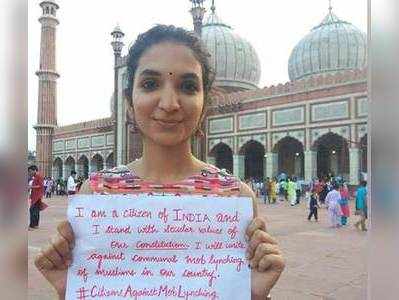 I am a citizen of INDIA and
I stand with secular values of
Our Constitution. I will unite
against communal mob lynching
of muslims in our country.
#Citizens Against Mob Lynching